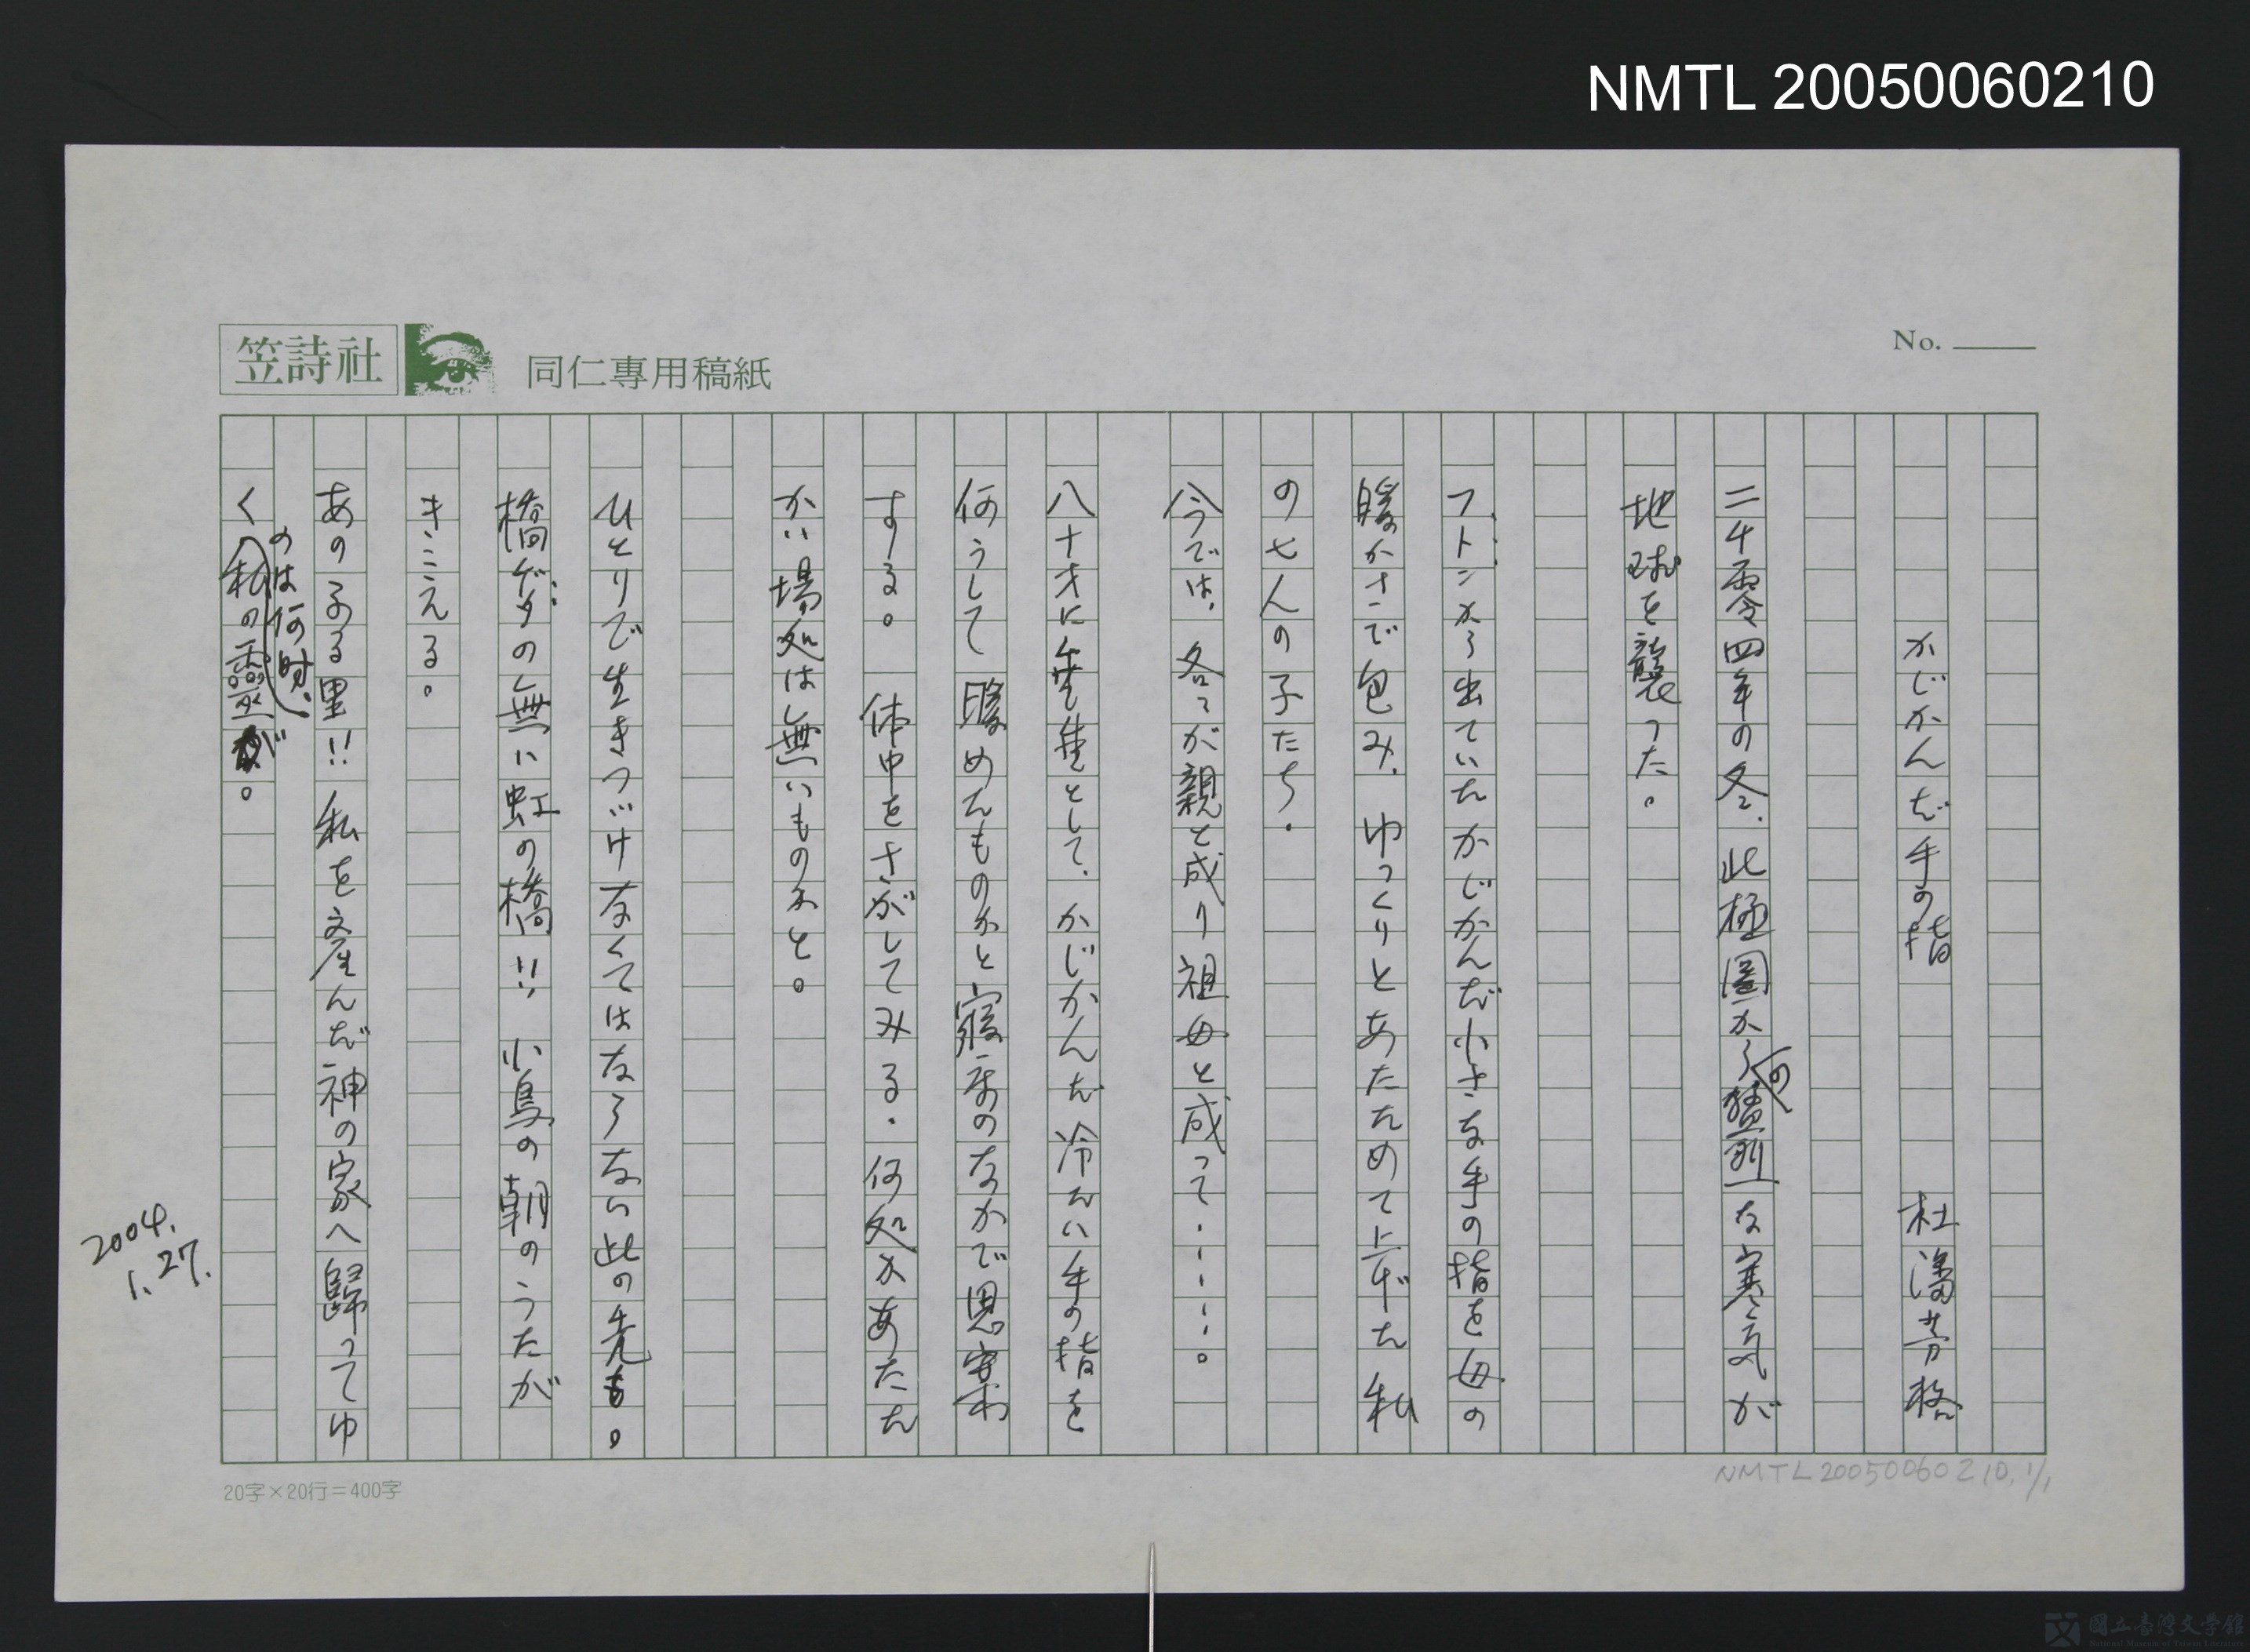 NMTL 20050060210
笠詩社
同仁專用稿紙
No.
かじかんだ手の指　杜潘芳格
二千零四年の冬、此極圏からの猛烈な寒気が
地球を襲った。
フトンから出ていたかじかんだ小さな手の指を母の
暖かさで包み、ゆっくりとあたためて上げた私
の七人の子たち、
今では、各々が親と成り祖母と成って・・・・・。
八十才に垂としてかじかんだ冷たい手の指を
何うして暖めたものかと寝床のなかで思案
する。体中をさがしてみる、何処かあたた
かい場処は無いものかと。
ひとりで生きつづけなくてはならない此の先も。
橋ゲタの無い虹の橋!!小鳥の朝のうたが
きこえる。
あの子る里!!私を産んだ神の家へ歸ってゆ
くのは何時、私の靈が。
2004.
1.27.
20字×20行=400字
NMTL20050060210, 1/1
國立臺灣文學館